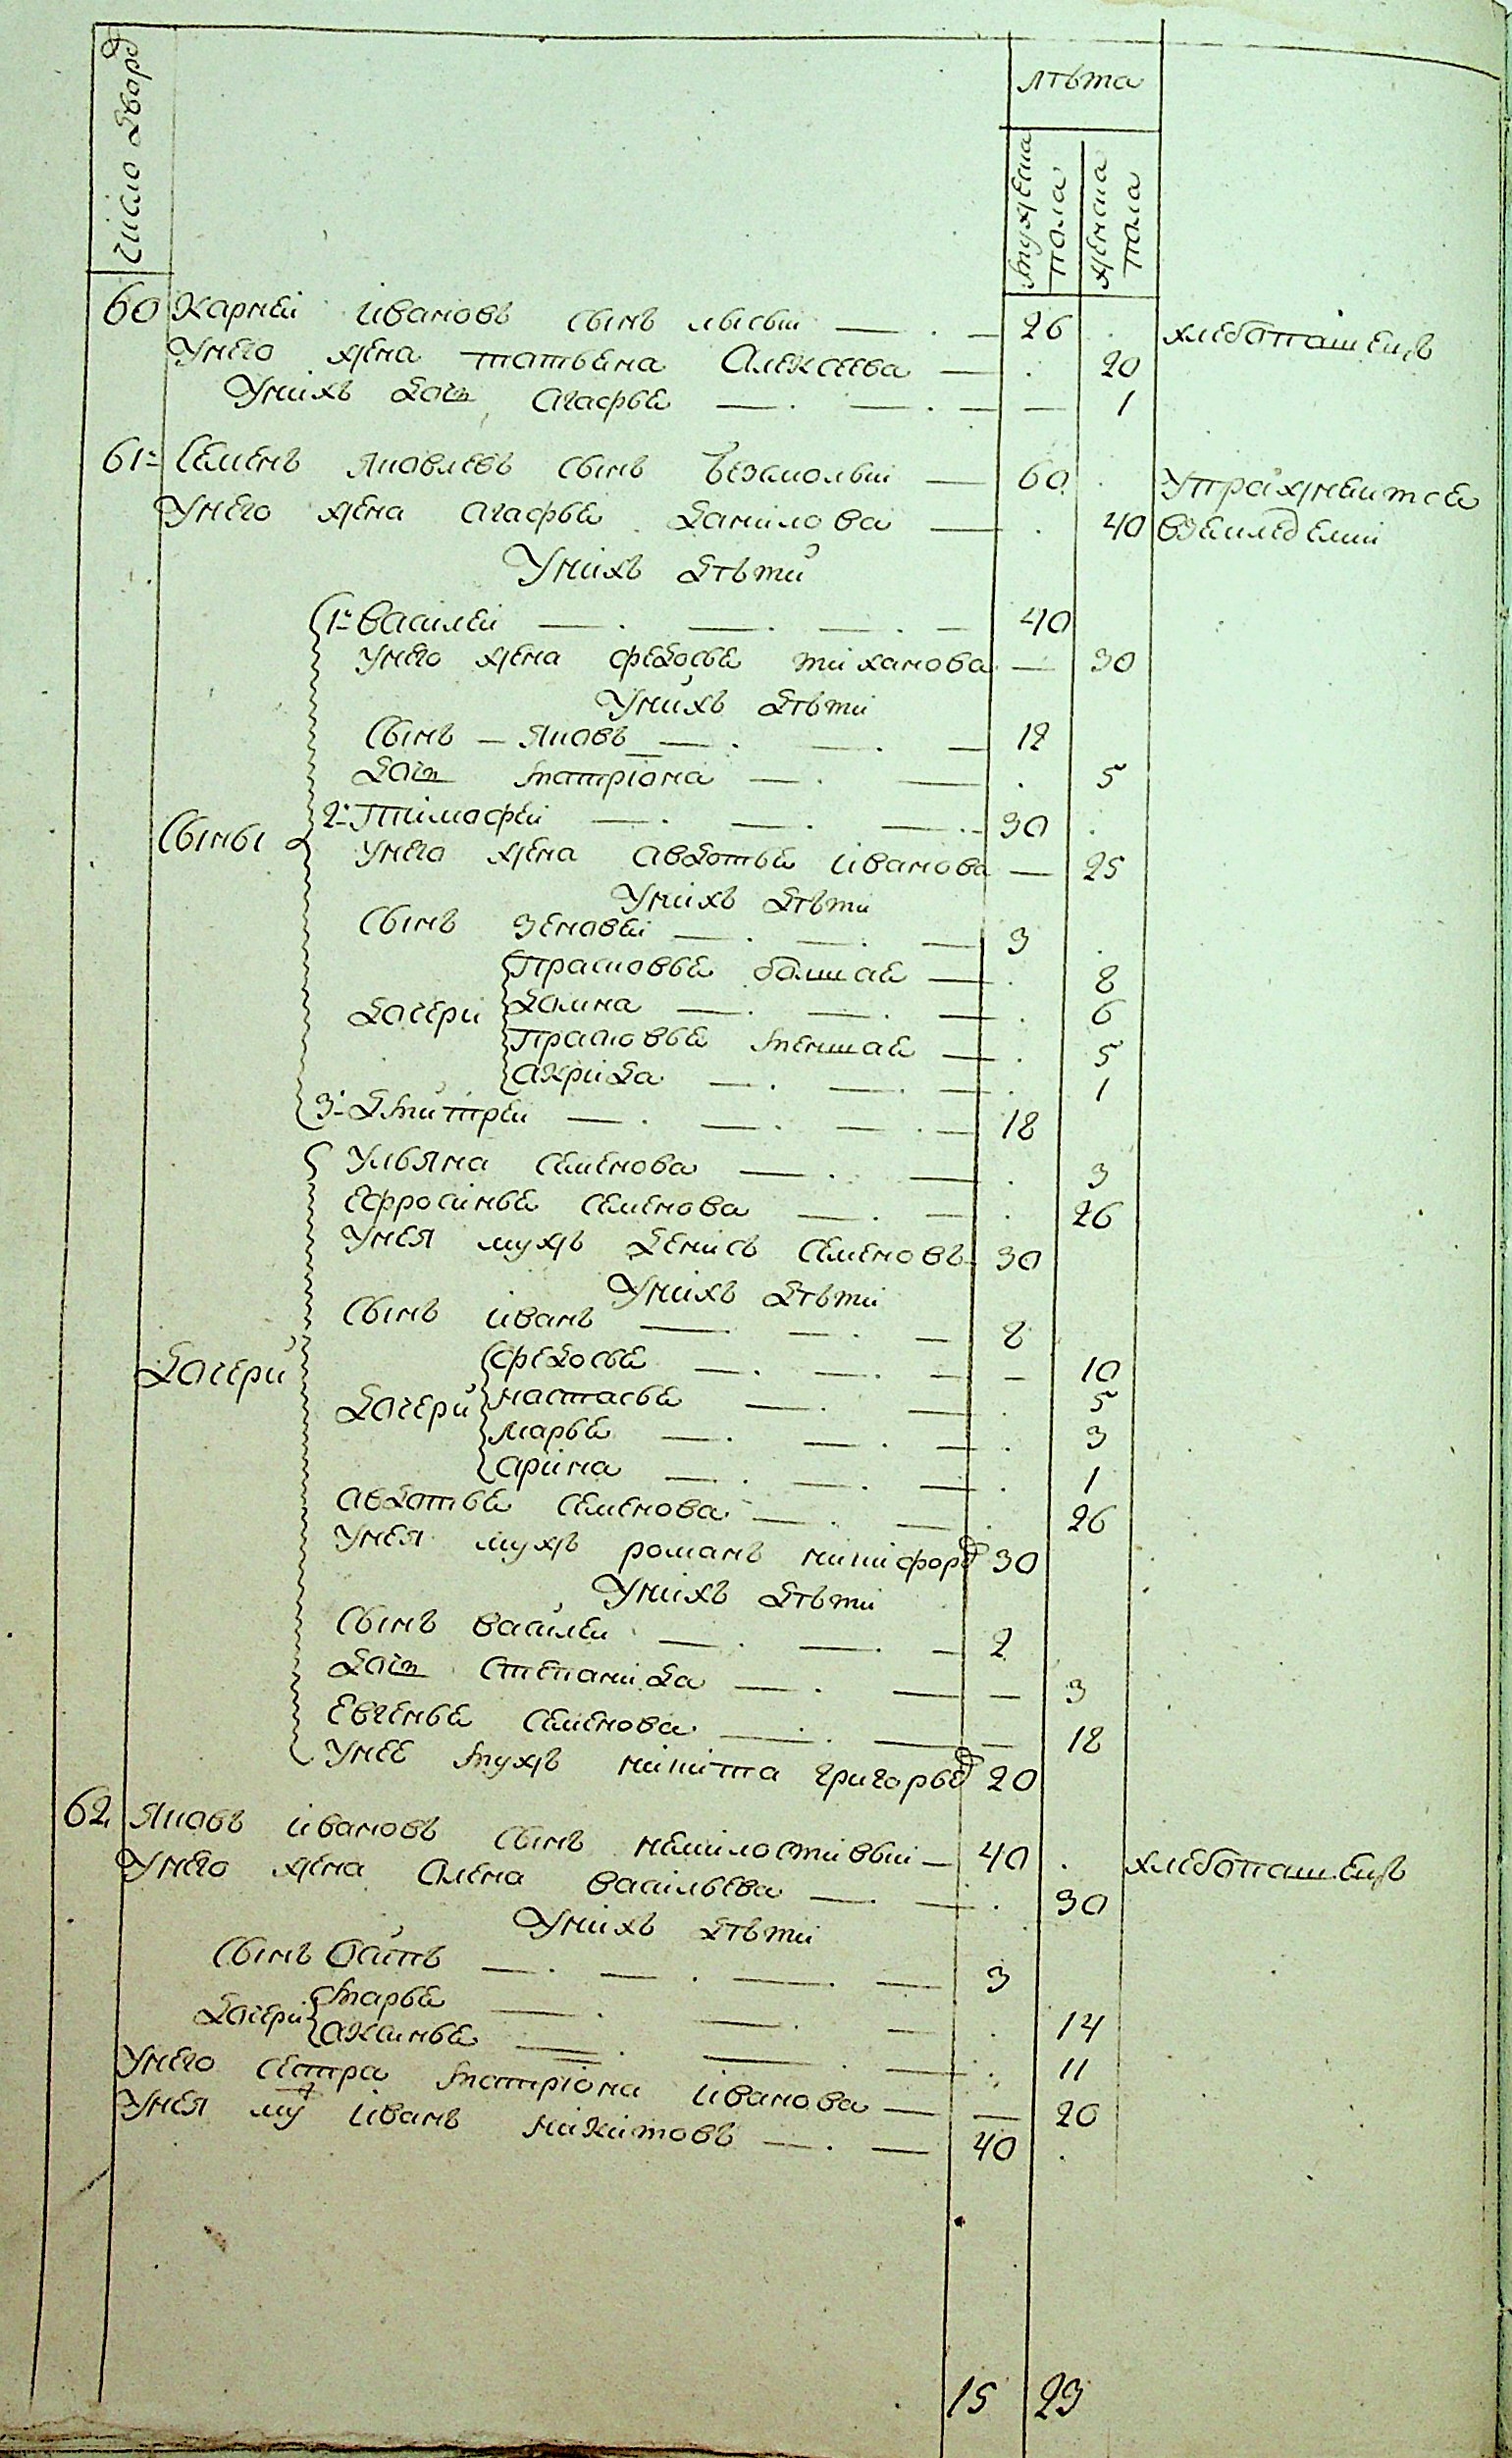 число дворъ
лѣта
мужеска пола
женска пола
60 Карнеи ивановъ сынъ лысыи — 26 хлебопашецъ
Унего жена татьяна Алексеева — 20
Унихъ дочь агафья — 1
61 Семенъ яковлевъ сынъ безмолвыи — 60 упражняитсе
Унего жена агафья данилова — 40 вземледелии
Унихъ дѣти
1 василеи — 40
унего жена федосья тиханова — 30
Унихъ дѣти
сынъ — яковъ — 12
дочь матриона — 5
Сыны 2 Тимофеи — 30
унего жена авдотья иванова — 25
Унихъ дѣти
сынъ зеновеи — 3
прасковья болшая — 8
дочери домна — 6
прасковья меншая — 5
акрида — 1
3 дмитреи — 18
ульяна семенова — 3
ефросинья семенова — 26
унея мужъ денисъ семеновъ — 30
Унихъ дѣти
сынъ иванъ — 8
федосья — 10
Дочери дочери настасья — 5
марья — 3
арина — 1
авдотья семенова — 26
унея мужъ романъ никифоров 30
Унихъ дѣти
сынъ василеи — 2
дочь степанида — 3
евгенья семенова — 18
унее мужъ никита григорьев 20
62 яковъ ивановъ сынъ немилостивыи — 40 хлебопашецъ
Унего жена алена васильева — 30
Унихъ дѣти
сынъ осипъ — 3
дочери марья — 14
аксинья — 11
Унего сестра матриона иванова — 20
Унея муж иванъ никитовъ — 40
15 23